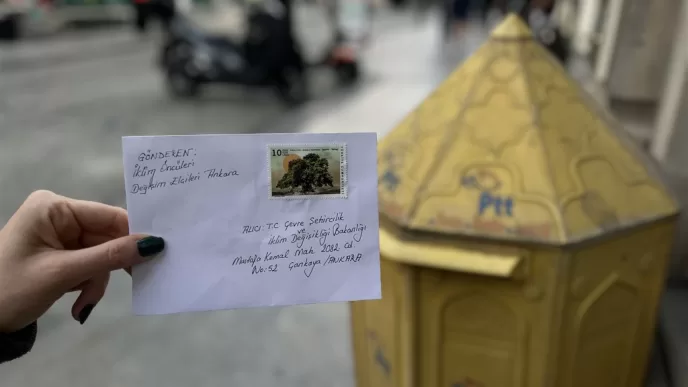 GÖNDEREN:
İklim Öncüleri
Değişim Elçileri Ankara
10
ALICI: T.C Çevre Şehircilik
ve
İklim Değişikliği Bakanlığı
Mustafa Kemal Mah. 2082 Cd.
No:52 Çankaya/ANKARA
Ptt